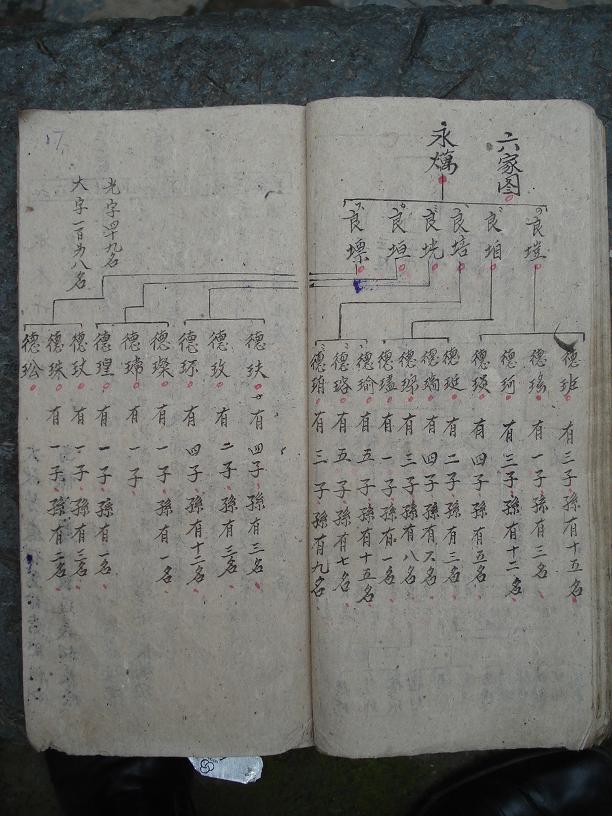 六家图
永�_
良塏
良垍
良培
良垙
良垣
良塛
德玨 有三子 孫有十五名
德瑤 有一子 孫有三名
德珂 有三子 孫有十二名
德瑛 有四子 孫有五名
德珽 有二子 孫有三名
德瑞 有四子 孫有六名
德 有三子 孫有八名
德 有一子 孫有一名
德瑜 有五子 孫有十五名
德璐 有五子 孫有七名
德珀 有三子 孫有九名
德玞 有四子 孫有三名
德玫 有二子 孫有三名
德环 有四子 孫有十二名
德璨 有一子 孫有一名
德 有一子
德瑝 有一子 孫有一名
德玟 有一子 孫有三名
德珠 有一子 孫有二名
德玱
光字四十九名
大字一百另八名
17